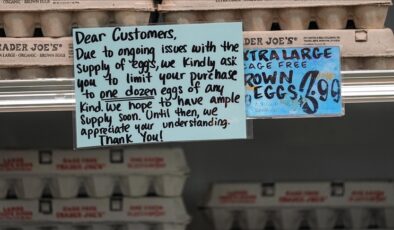 Dear Customers,
Due to ongoing issues with the
supply of eggs, we kindly ask
you to limit your purchase
to one dozen eggs of any
kind. We hope to have ample
supply soon. Until then, we
appreciate your understanding.
Thank You!
TRADER JOE'S
TRADER JOE'S
EXTRA LARGE
CAGE FREE
BROWN
EGGS